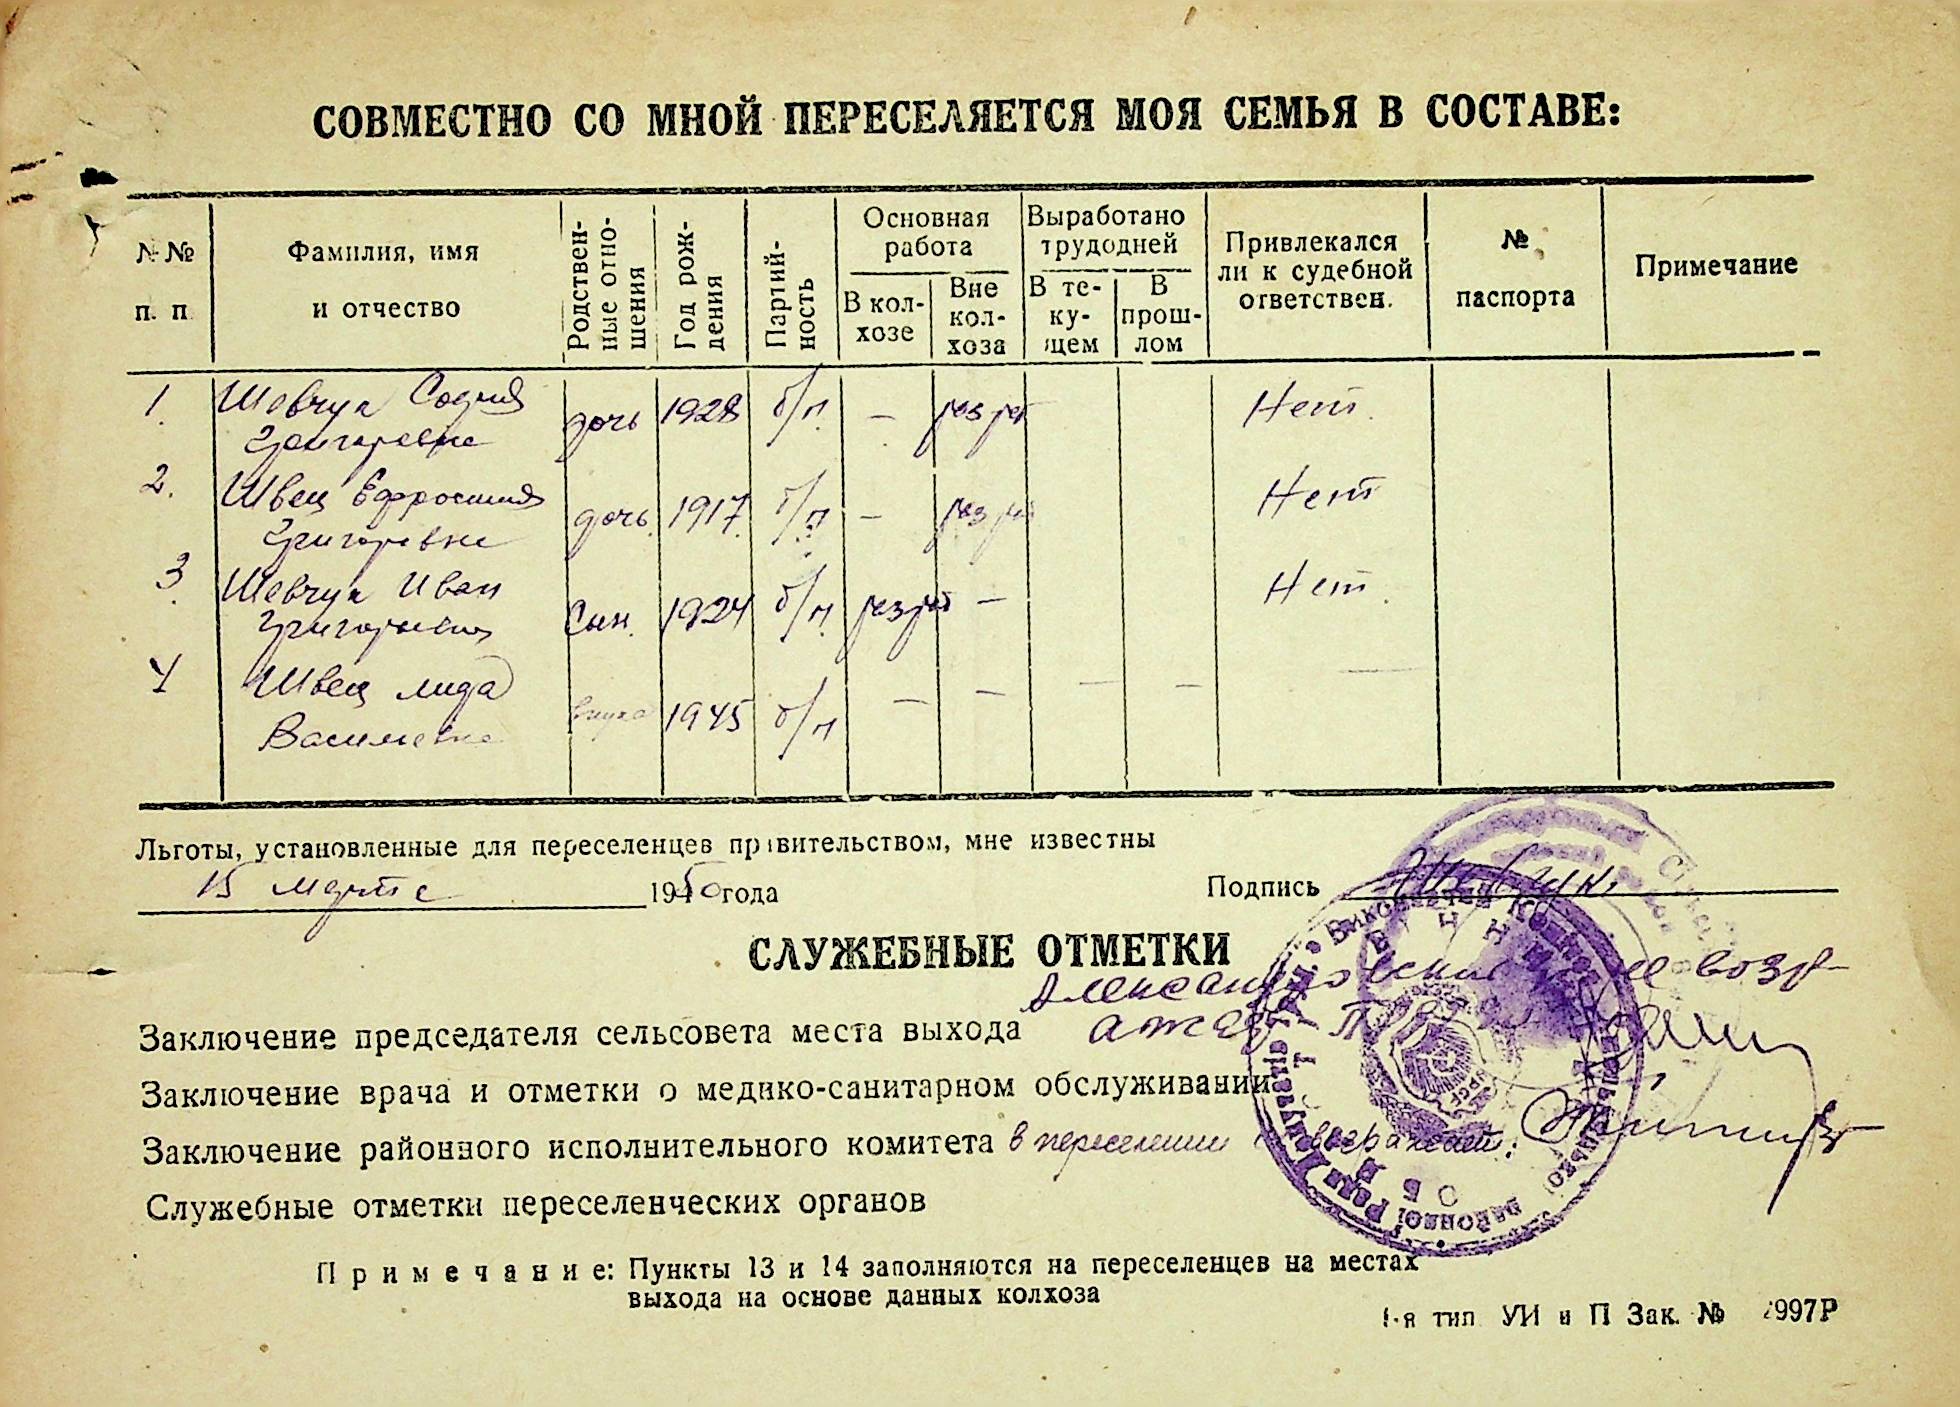 СОВМЕСТНО СО МНОЙ ПЕРЕСЕЛЯЕТСЯ МОЯ СЕМЬЯ В СОСТАВЕ:
№№ п. п.
Фамилия, имя и отчество
Родствен-ные отно-шения
Год рож-дения
Партий-ность
Основная работа
В кол-хозе
Вне кол-хоза
Выработано трудодней
В те-ку-щем
В прош-лом
Привлекался ли к судебной ответствен.
№ паспорта
Примечание
1. Шевчук София дочь 1928 б/п — Нет.
Григоревна
2. Швец Ефросиния дочь 1917 б/п — Нет
Григоревна
3 Шевчук Иван Сын 1924 б/п — Нет
Григорьевич
4 Швец Лида внука 1945 б/п — — — — —
Василевна
Льготы, установленные для переселенцев правительством, мне известны
15 марта 1950 года
Подпись Шевчук
СЛУЖЕБНЫЕ ОТМЕТКИ
Заключение председателя сельсовета места выхода
Заключение врача и отметки о медико-санитарном обслуживании
Заключение районного исполнительного комитета в переселении
Служебные отметки переселенческих органов
Примечание: Пункты 13 и 14 заполняются на переселенцев на местах
выхода на основе данных колхоза
1-я тип. УИ и П Зак. № 997Р